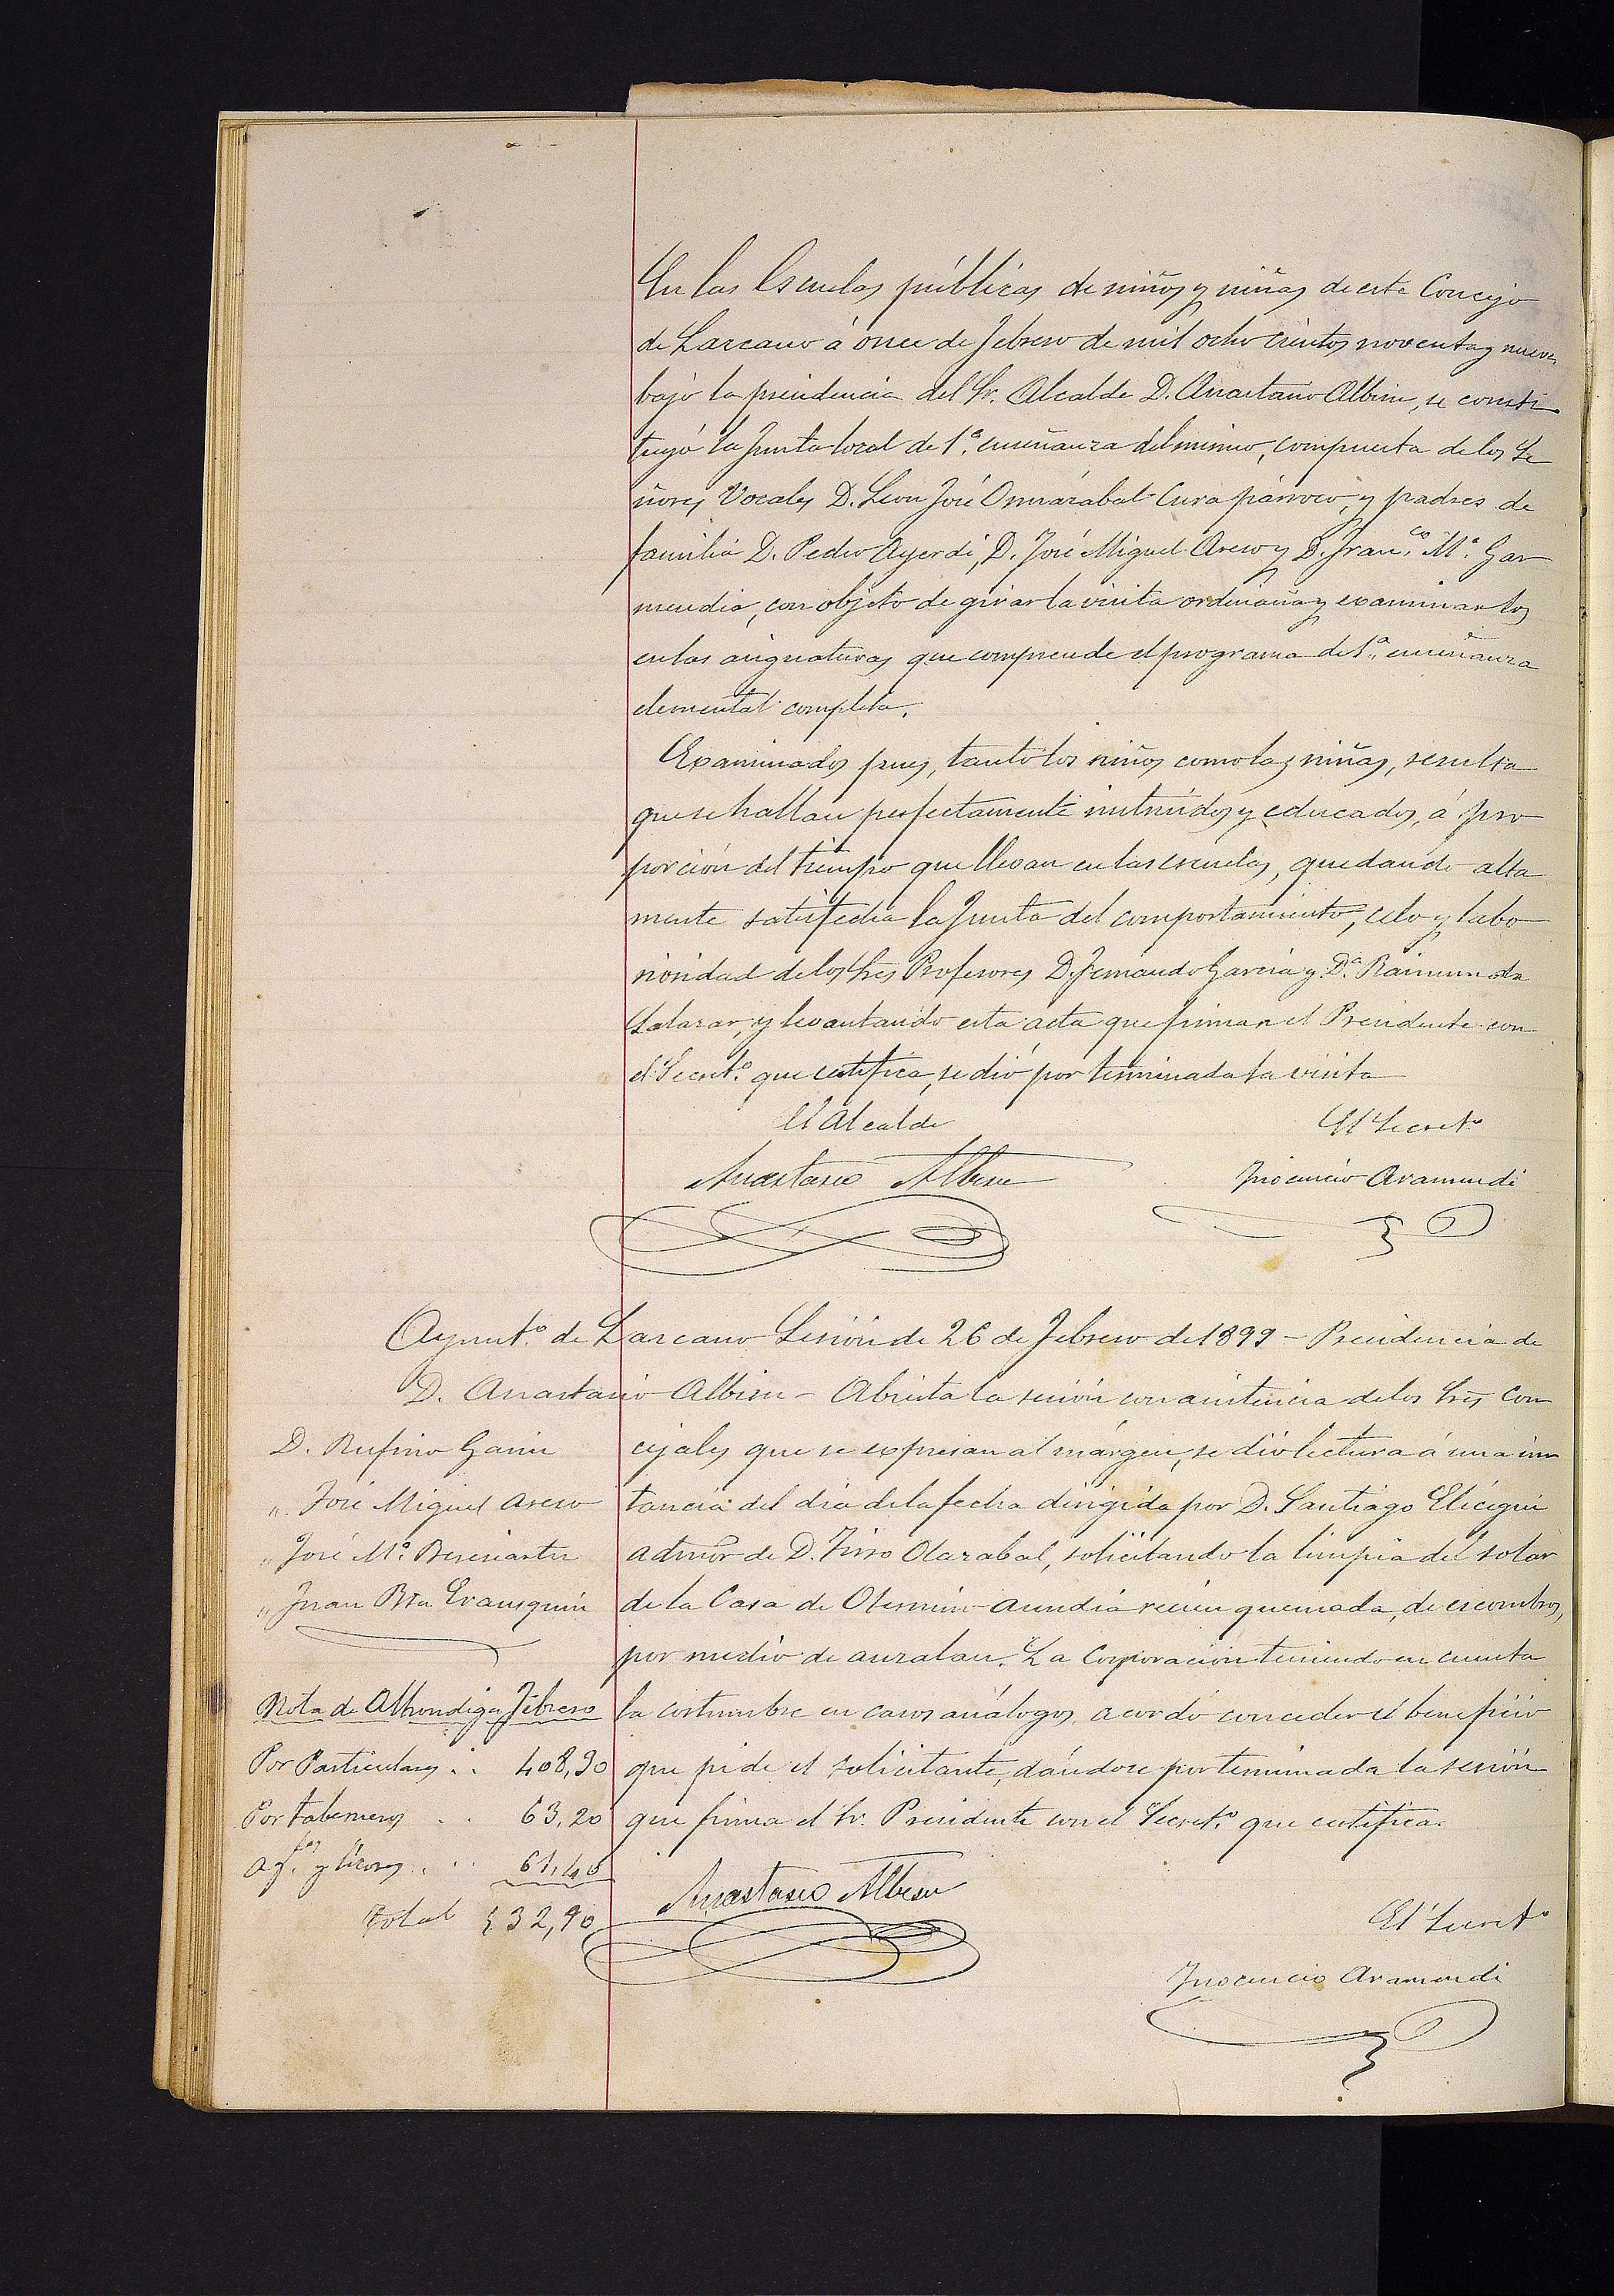 En las Escuelas públicas de niños y niñas de este Concejo
de Lazcano á once de febrero de mil ocho cientos noventa y nueve
bajo la presidencia del Sr. Alcalde D. Anastasio Albisu, se consti
tuyó la Junta local de 1ª. enseñanza del mismo, compuesta de los Se
ñores Vocales D. Leon José Ormazabal Cura párroco, y padres de
familia D. Pedro Ayerdi, D. José Miguel Areso y D. Franco. Mª. Gar
mendia, con objeto de girar la visita ordinaria y examinarlos
en las asignaturas que comprende el programa de 1ª. enseñanza
elemental completa.
Examinados pues, tanto los niños como las niñas, resulta
que se hallan perfectamente instruídos y educados, á pro
porción del tiempo que llevan en las escuelas, quedando alta
mente satisfecha la Junta del comportamiento, celo y labo
riosidad de los Sres Profesores D. Fernando Garcia y Dª. Raimunda
Salazar, y levantando esta acta que firman el Presidente con
el Secretº. que certifica, se dió por terminada la visita
El Alcalde El Secretº
Anastasio Albisu Inocencio Aramendi
Ayuntº. de Lazcano Sesión de 26 de Febrero de 1899 - Presidencia de
D. Anastasio Albisu - Abierta la sesión con asistencia de los Sres Con
cejales que se expresan al márgen, se dió lectura á una ins
tancia del dia de la fecha dirigida por D. Santiago Elicegui
admor de D. Tirso Olazabal, solicitando la limpia del solar
de la Casa de Otermin-aundia recien quemada, de escombros,
por medio de auzalan. La Corporación teniendo en cuenta
la costumbre en casos análogos, acordó conceder el beneficio
que pide el solicitante, dándose por terminada la sesión
que firma el Sr. Presidente con el Secretº. que certifica.
Anastasio Albisu
El Secretº
Inocencio Aramendi
D. Rufino Garin
" José Miguel Areso
" José Mª. Beresiartu
" Juan Bta Erausquin
Nota de Alhondiga Febrero
Por Particulares . . 408,30
Por taberneros . . 63,20
y licores . . . 61,40
Total 532,90